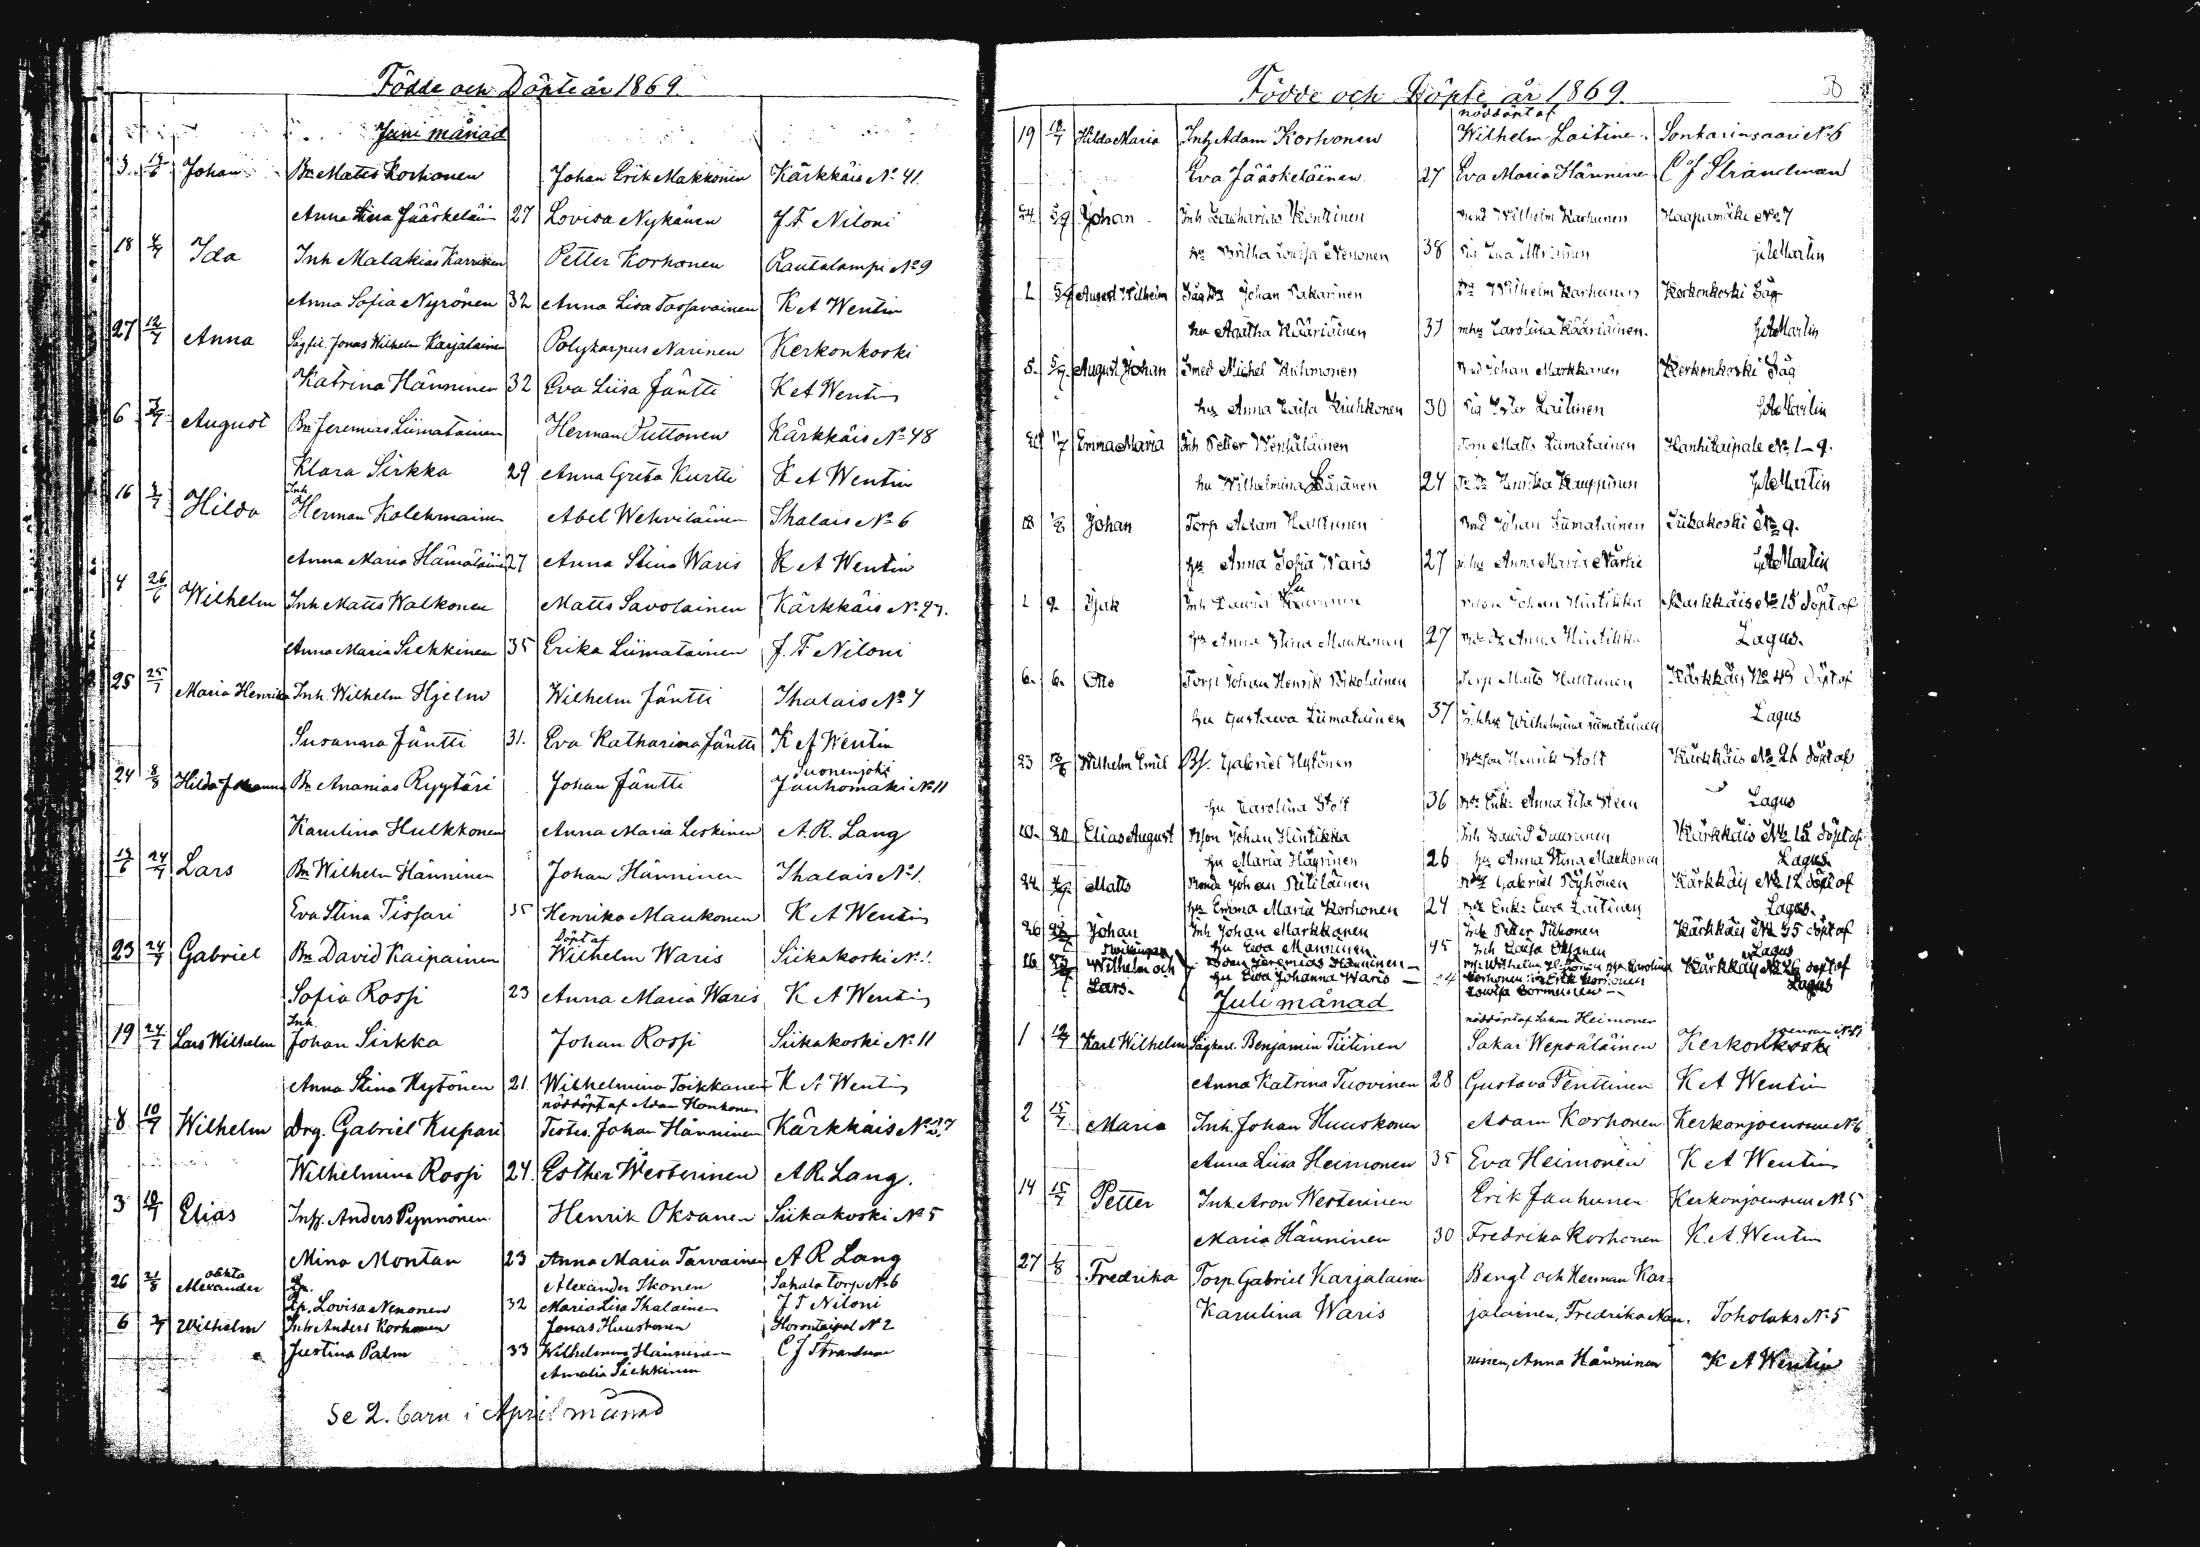 Födde och Döpte år 1869.
Juni månad
3 13/6 Johan Bn Matts Korhonen Johan Erik Makkonen Kärkkäis No 41.
Anna Stina Jääskeläin 27 Lovisa Nykänen J. F. Niloni
18 4/7 Ida Inh Malakias Karvinen Petter Korhonen Rautalampi No 9
Anna Sofia Nyrönen 32 Anna Lisa Tossavainen K A Wentin
27 12/7 Anna Jonas Wilhelm Karjalainen Polykarpus Narinen Kerkonkoski
Katrina Hänninen 32 Eva Liisa Jäntti K A Wentin
6 August Bn Jeremias Liimatainen Herman Puttonen Kärkkäis No 48
Klara Sirkka 29 Anna Greta Kurtti K A Wentin
16 Hilda Inh Herman Kolehmainen Abel Wehviläinen Ihalais No 6
Anna Maria Hämäläinen 27 Anna Stina Waris K A Wentin
4 26/6 Wilhelm Inh Matts Walkonen Matts Savolainen Kärkkäis No 27.
Anna Maria Siekkinen 35 Erika Liimatainen J. F. Niloni
25 25/7 Maria Henrika Inh. Wilhelm Hjelm Wilhelm Jäntti Ihalais No 4
Susanna Jäntti 31. Eva Katharina Jäntti K A Wentin
24 8/8 Hilda Johanna Bn Ananias Ryytäri Johan Jäntti Suonenjoki Jauhomäki No 11
Karulina Hulkkonen Anna Maria Leskinen A. R. Lang
13/6 24/7 Lars Bn Wilhelm Hänninen Johan Hänninen Ihalais No 1.
Eva Stina Tissari 35 Henrika Maukonen K A Wentin
23 24/7 Gabriel Bn David Kaipainen döpt af Wilhelm Waris Siikakoski No 1.
Sofia Rossi 23 Anna Maria Waris K A Wentin
19 24/7 Lars Wilhelm Inh. Johan Sirkka Johan Rossi Siikakoski No 11
Anna Stina Hytönen 21. Wilhelmina Toikkanen K A Wentin
8 10/7 Wilhelm Drg. Gabriel Kupari nöddöpt af Adam Honkonen Testes. Johan Hänninen Kärkkäis No 27
Wilhelmina Rossi 24. Esther Westerinen A R. Lang.
3 10/7 Elias Anders Pynnönen Henrik Oksanen Siikakoski No 5
Mina Montan 23 Anna Maria Tarvainen A R Lang
26 21/8 oäkta Alexander Alexander Ikonen Sahala torp No 6
Lovisa Nenonen 32 Maria Lisa Ihalainen J F Niloni
6 Wilhelm Inh Anders Korhonen Jonas Huuskonen No 2
Justina Palm 33 Wilhelmina Hänninen C J Strandman
Amalia Siekkinen
Se 2. barn i April månad
Födde och Döpte år 1869.
19 18/7 Hilda Maria Inh Adam Korhonen nöddöpt af Wilhelm Laitine Sonkarinsaari No 6
Eva Jääskeläinen 27 Eva Maria Hänninen C J Strandman
24 Johan Inh Zacharias Kontinen Wilhelm Karhunen Haapamäki No 7
Britha Lovisa Nenonen 38 G A Martin
1 August Wilhelm Johan Pakarinen Wilhelm Karhunen Korkonkoski Såg
hu Agatha Kääriäinen 37 Carolina Kääriäinen. G A Martin
5. August Johan Smed Michel Kuhmonen Johan Markkanen Kerkonkoski Såg
Anna Caisa Kuukkonen 30 Ester Laitinen G A Martin
Emma Maria Inh Petter Wepsäläinen Matts Liimatainen Hanhitaipale No 1-9.
hu Wilhelmina Räsänen 24 Henrika Kauppinen G A Martin
18 1/8 Johan Torp Adam Halttunen Johan Liimatainen Siikakoski No 9.
Anna Sofia Waris 27 Anna Maria Närhi G A Martin
1 2. Isak Inh David Johan Hintikka Karkkäis No 15 döpt af
Anna Stina Maukonen 27 Anna Hintikka Lagus.
6. 6. Otto Torp Johan Henrik Nikolainen Torp Matts Halttunen Kärkkäis No 48 döpt af
hu Gustawa Liimatainen 37 Wilhelmina Liimatainen Lagus
23 Wilhelm Emil Gabriel Hytönen Henrik Stolt Kärkkäis No 26 döpt af
hu Carolina Stolt 36 Anna Lisa Steen Lagus
20. Elias August Johan Hintikka Inh David Suuronen Kärkkäis No 15 döpt af
hu Maria Häyrinen 26 Anna Stina Maukonen Lagus.
24 Matts Johan Pitiläinen Gabriel Pöyhönen Kärkkäis No 12 döpt af
Emma Maria Korhonen 24 Enk. Ewa Laitinen Lagus.
26 Johan Inh Johan Markkanen Inh Petter Puhonen Kärkkäis No 45 döpt af
hu Ewa Manninen 45 Inh Caisa Oksanen Lagus
16 Twillingar Wilhelm och Lars. Jeremias Hänninen Wilhelm Carolina Kärkkäis No 26 döpt af
hu Ewa Johanna Waris 24 Korhonen Erik Korhonen Lagus
Juli månad
1 Karl Wilhelm Sågkarl. Benjamin Tiitinen nöddöpt af Sakar Heimonen Sakari Wepsäläinen Kerkonkoski
Anna Katrina Tuovinen 28 Gustava Penttinen K A Wentin
2 15/7 Maria Inh. Johan Huuskonen Adam Korhonen Kerkonjoensuu No 6
Anna Liisa Heimonen 35 Eva Heimonen K A Wentin
14 15/7 Petter Inh. Aron Westerinen Erik Jauhunen Kerkonjoensuu No 5
Maria Hänninen 30 Fredrika Korhonen K. A. Wentin
27 1/8 Fredrika Torp. Gabriel Karjalainen Bengt och Herman Kar-
Karulina Waris jalainen, Fredrika Man. Toholaks No 5
ninen, Anna Hänninen K A Wentin